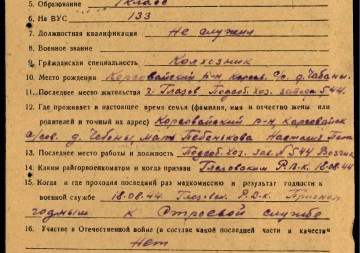 5. Образование 1 класс
6. На ВУС 133
7. Должностная квалификация Не служил
8. Военное звание
9. Гражданская специальность Колхозник
10. Место рождения Карсовайский р-н, с/с. д. Чабаны.
11. Последнее место жительства г. Глазов Подсоб. хоз. завода 544.
12. Где проживает в настоящее время семья (фамилия, имя и отчество жены или
родителей и точный на адрес) Карсовайский р-н, Карсовайск
с/сов. д. Чебаны, мать
13. Последнее место работы и должность Подсоб. хоз. зав. № 544 Возчик
14. Каким райгорвоенкоматом и когда призван Глазовским Р.В.К. 18.08.44
15. Когда и где проходил последний раз медкомиссию и результат годности к
военной службе 18.08.44. Глазовск. Р.В.К. Признан
годным к строевой службе
16. Участие в Отечественной войне (в составе какой последней части в качеств
Нет